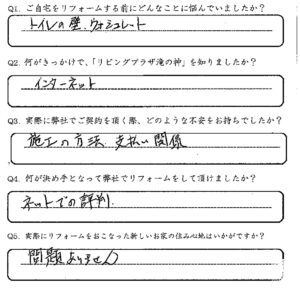 Q1. ご自宅をリフォームする前にどんなことに悩んでいましたか？
トイレの壁、ウォシュレット
Q2. 何がきっかけで、「リビングプラザ滝の神」を知りましたか？
インターネット
Q3. 実際に弊社でご契約を頂く際、どのような不安をお持ちでしたか？
施工の方法、支払い関係
Q4. 何が決め手となって弊社でリフォームをして頂けましたか？
ネットでの評判.
Q5. 実際にリフォームをおこなった新しいお家の住み心地はいかがですか？
問題ありません